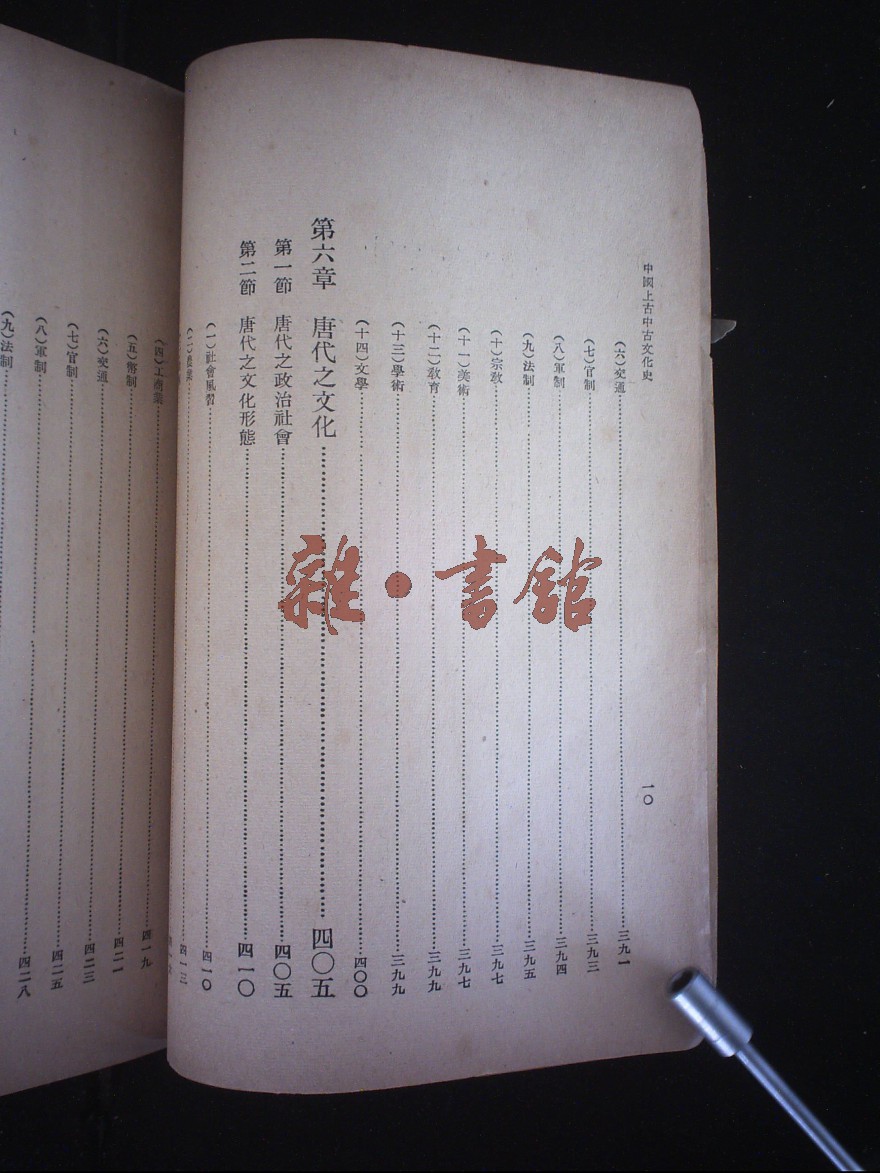 中國上古中古文化史
一〇
（六）交通 三九一
（七）官制 三九三
（八）軍制 三九四
（九）法制 三九五
（十）宗教 三九七
（十一）美術 三九七
（十二）教育 三九九
（十三）學術 三九九
（十四）文學 四〇〇
第六章　唐代之文化 四〇五
第一節　唐代之政治社會 四〇五
第二節　唐代之文化形態 四一〇
（一）社會風習 四一〇
（二）農業 四一三
（四）工商業 四一九
（五）幣制 四二一
（六）交通 四二三
（七）官制 四二五
（八）軍制 四二八
（九）法制
雜·書館